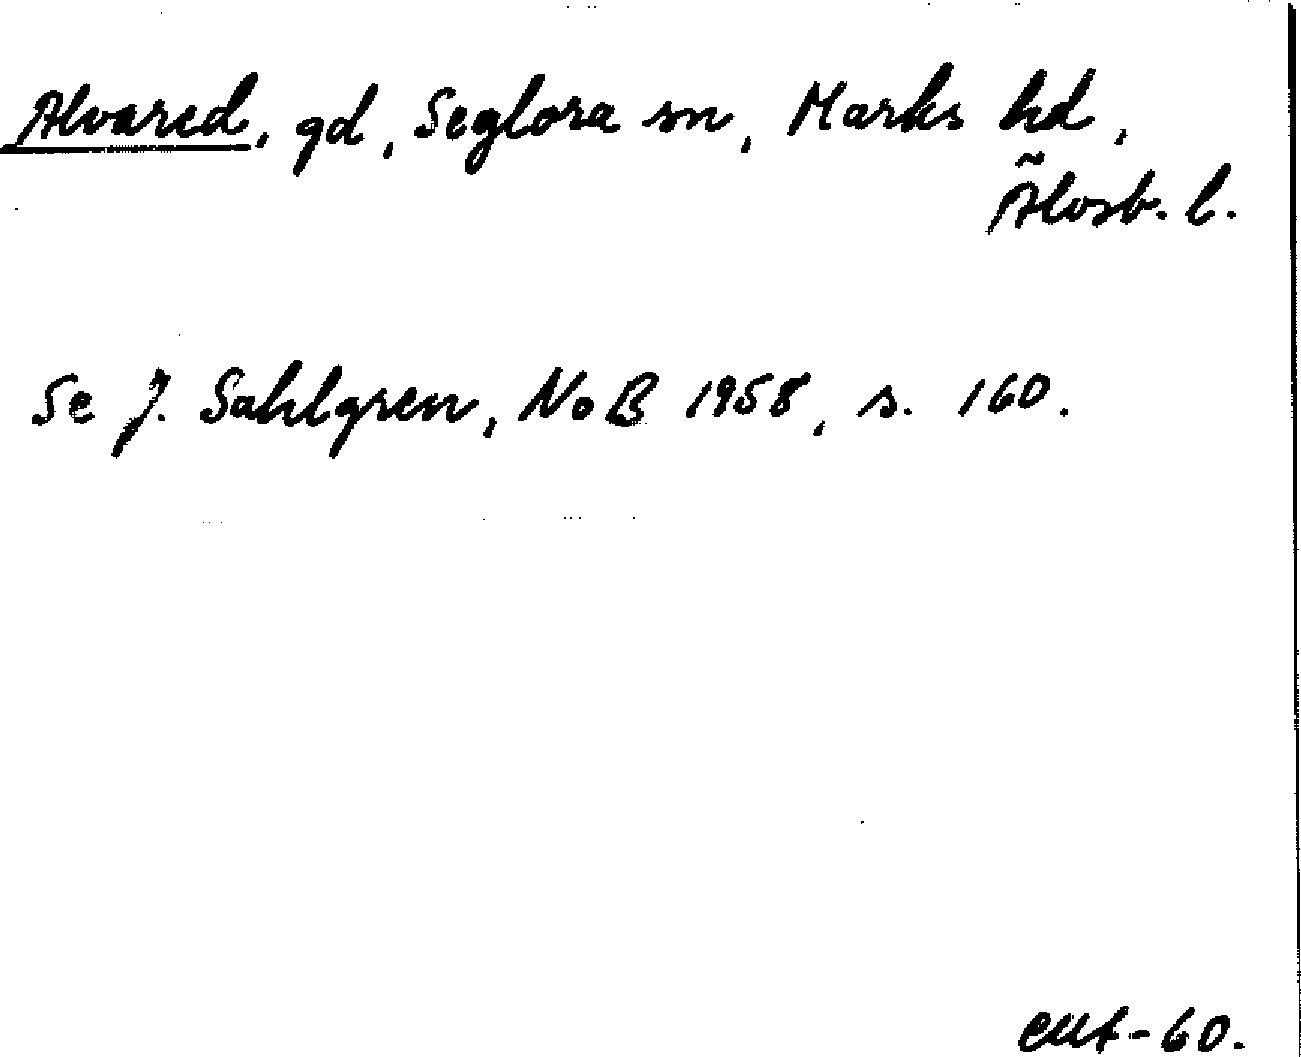 Alvared, gd, Seglora sn, Marks hd,
Älvsb. l.
Se J. Sahlgren, NoB 1958, s. 160.
-60.